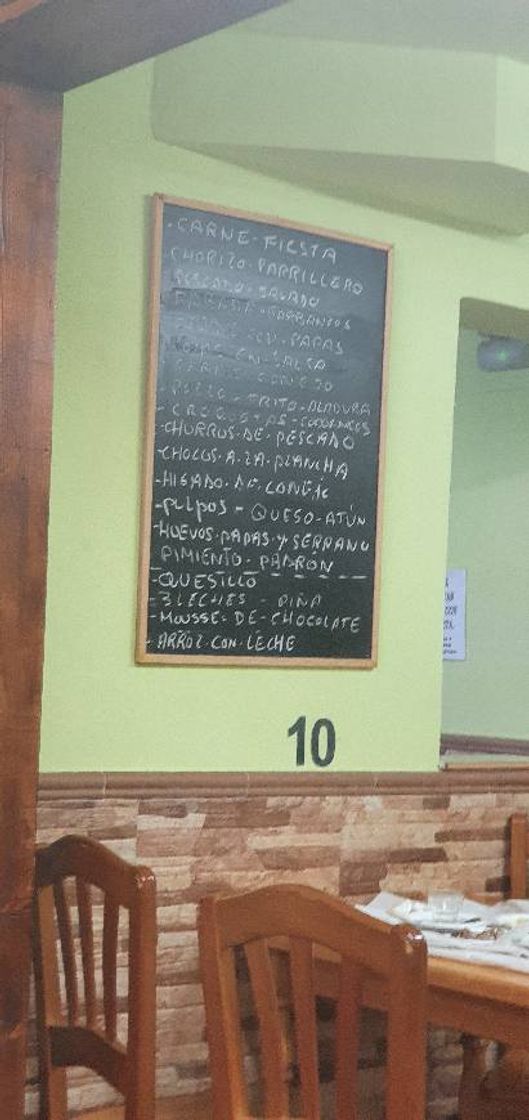 . CARNE-FIESTA
CHORIZO-PARRILLERO
PESCADO-SALADO
GARBANZOS
PAPAS
EN-SALSA
CONEJO
FRITO-
- CROQUETAS-
-CHURROS-DE-PESCADO
-CHOCOS-A-LA-PLANCHA
-HIGADO-DE-CONEJO
-PULPOS - QUESO-ATÚN
-HUEVOS-PAPAS-Y SERRANO
PIMIENTO-PADRON
-QUESILLO
-3 LECHES - PIÑA
-MOUSSE-DE-CHOCOLATE
-ARROZ-CON-LECHE
10